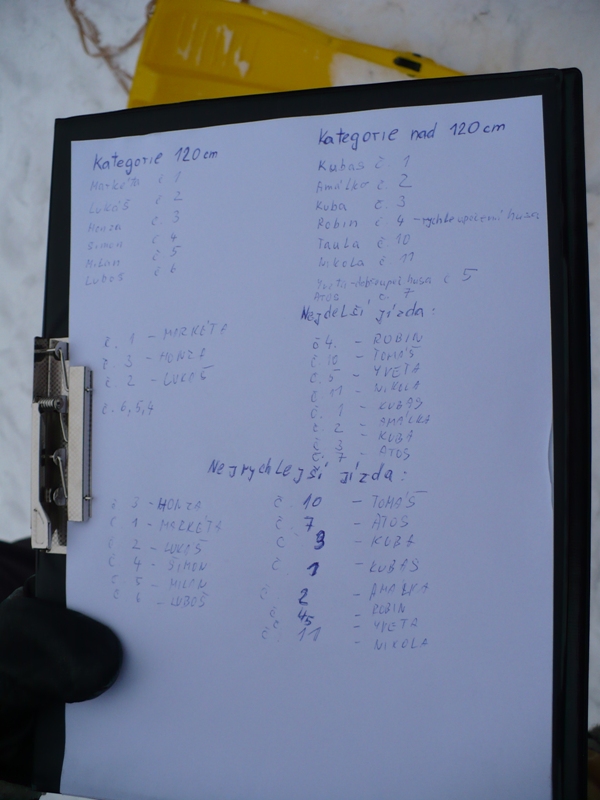 Kategorie 120cm
Markéta č 1
Lukáš č 2
Honza č. 3
Šimon č 4
Milan č 5
Luboš č 6
Kategorie nad 120cm
Kubas č. 1
Amálka č. 2
Kuba č. 3
Robin č 4 - rychle upečení husa
č. 10
Nikola č. 11
Yveta - husa č 5
Atos č. 7
č. 1 - MARKÉTA
č. 3 - HONZA
č. 2 - LUKÁŠ
č. 6, 5, 4
Nejdelší jízda:
č 4. - ROBIN
č 10 - TOMÁŠ
č. 5 - YVETA
č. 11 - NIKOLA
č. 1 - KUBAS
č. 2 - AMÁLKA
č. 3 - KUBA
č. 7 - ATOS
Nejrychlejší jízda:
č 3 - HONZA
č 1 - MARKÉTA
č 2 - LUKÁŠ
č 4 - ŠIMON
č 5 - MILAN
č 6 - LUBOŠ
č. 10 - TOMÁŠ
č 7 - ATOS
č 3 - KUBA
č 1 - KUBAS
č 2 - AMÁLKA
č 4 - ROBIN
č 5 - YVETA
č. 11 - NIKOLA